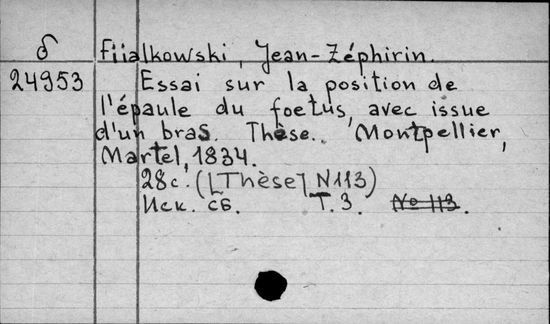 б Fiialkowski, Jean-Zéphirin.
24953 Essai sur la position de
l'épaule du foetus, avec issue
d'un bras. Thèse. Montpellier,
Martel, 1834.
28c. ([Thèse] N113)
Иск. сб. T. 3. No 113.